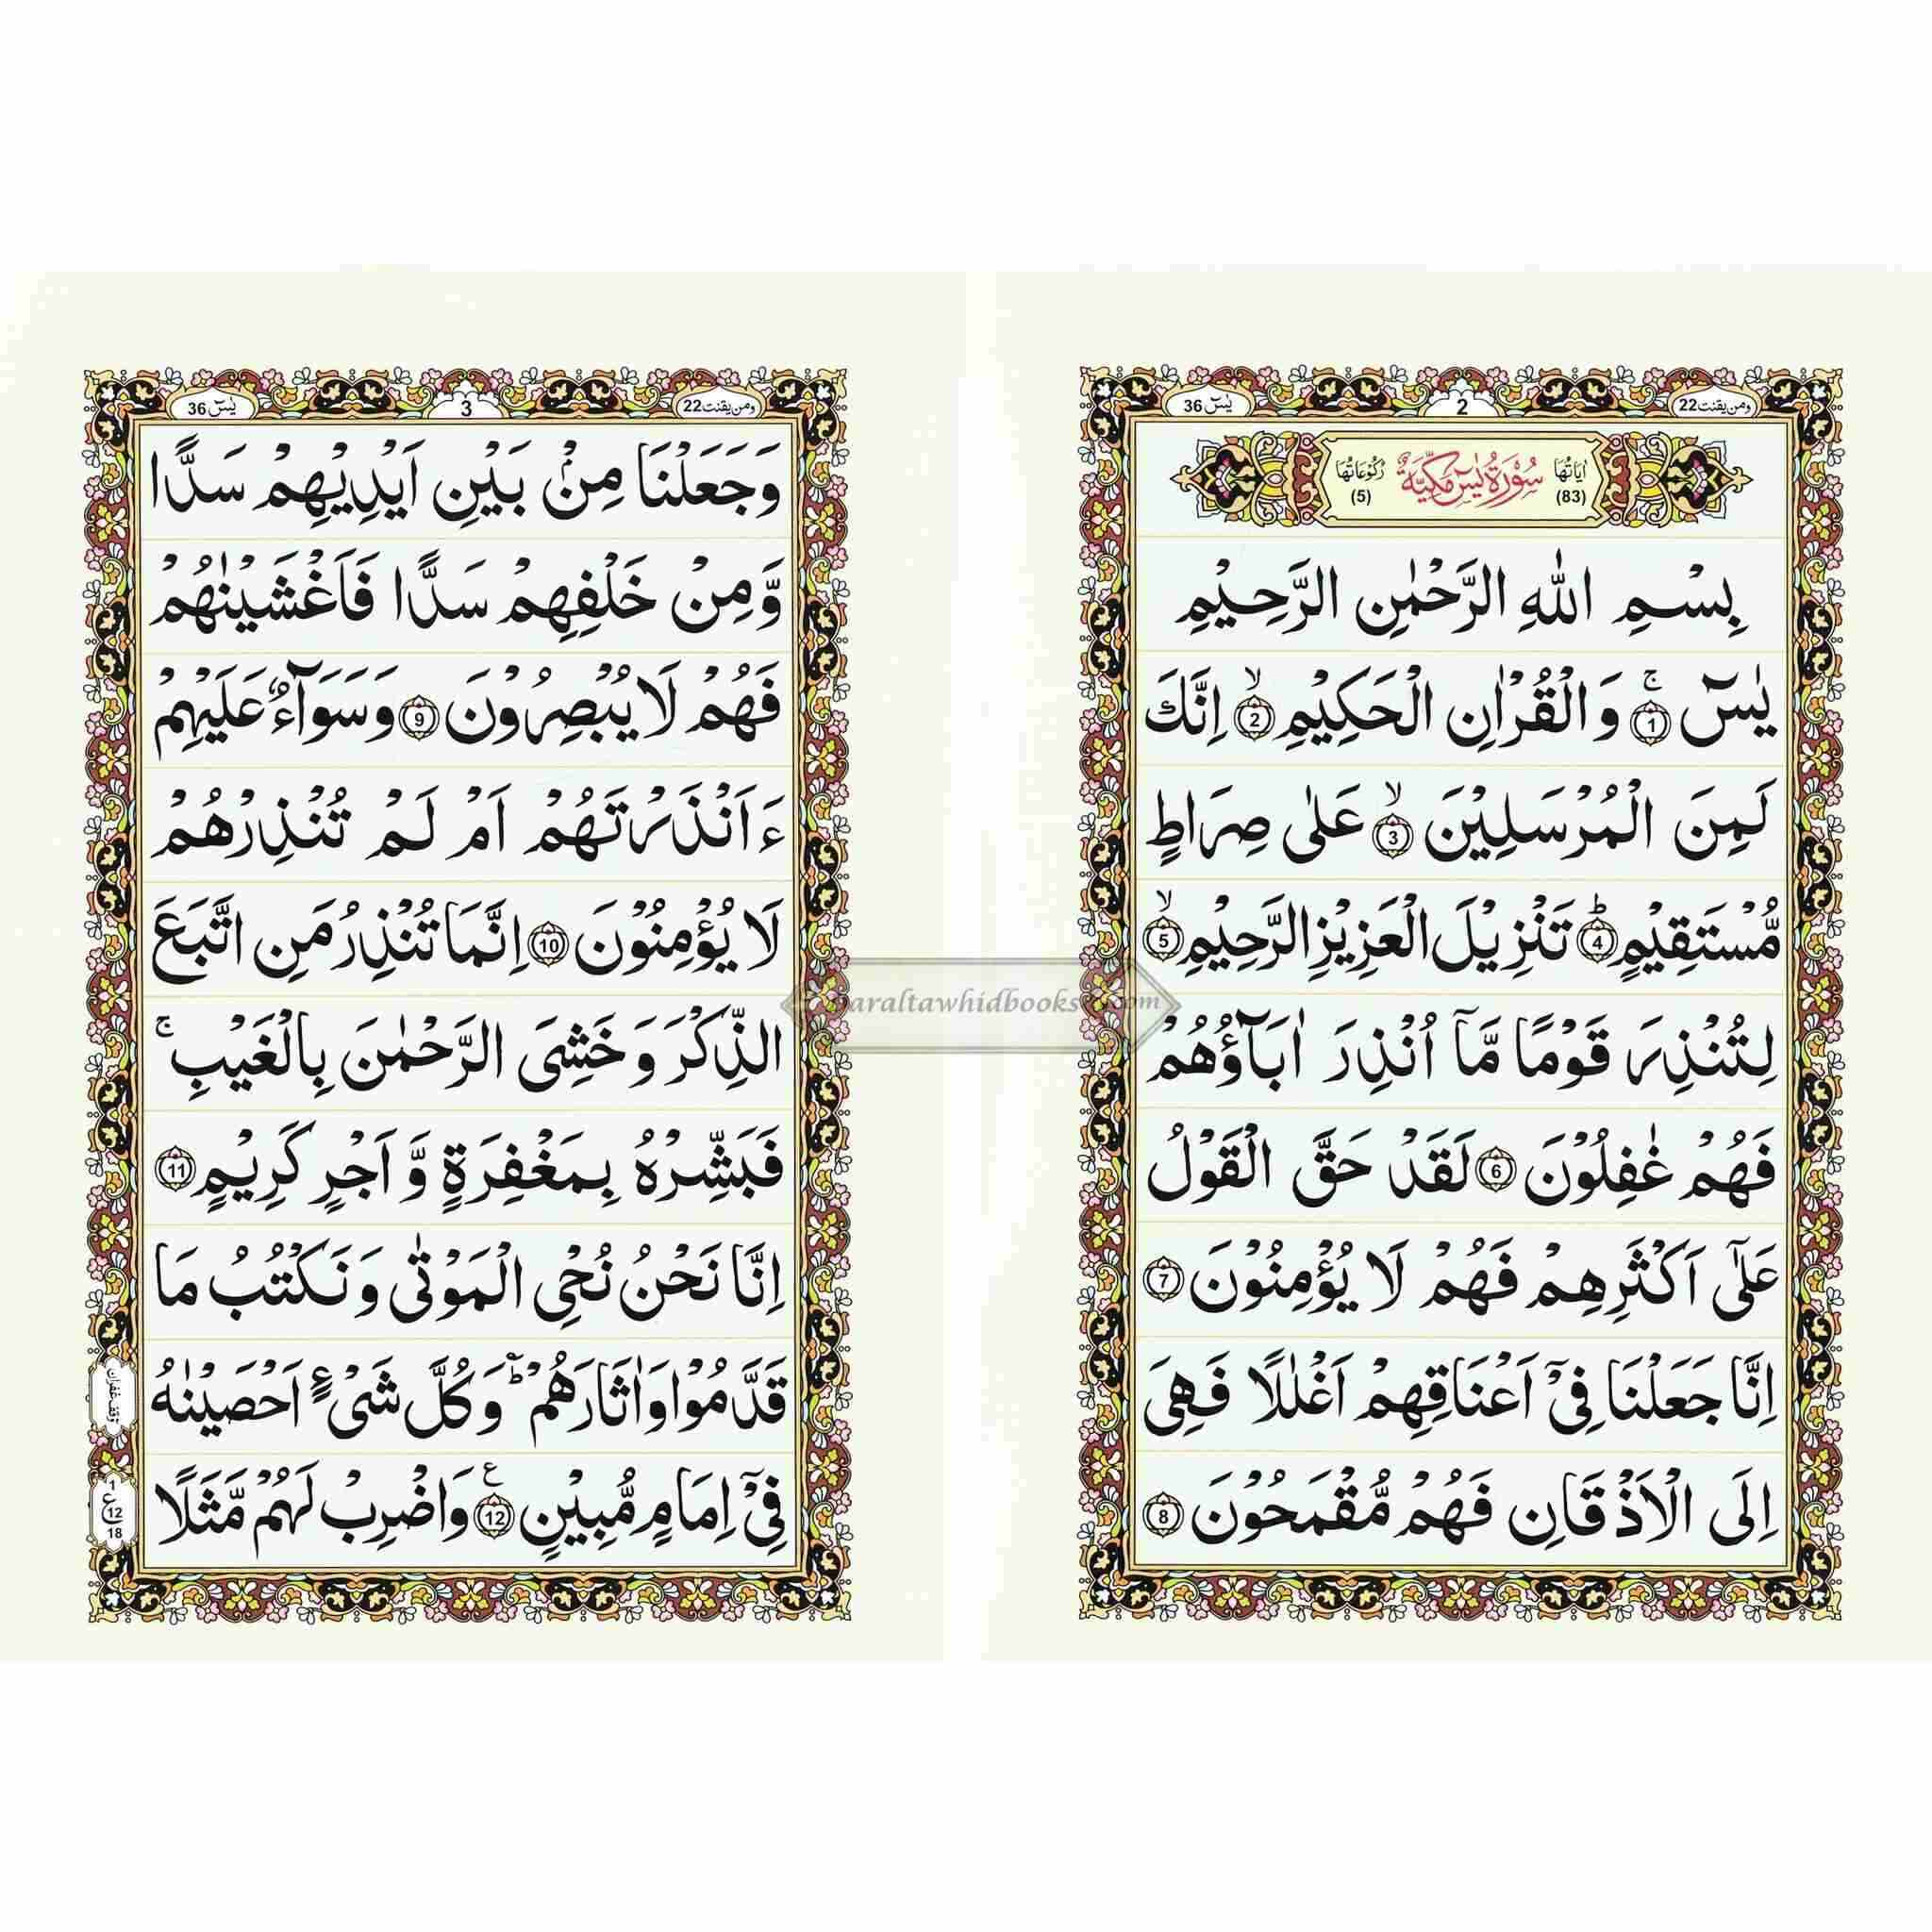 ومن يقنت 22
2
يٰسٓ 36
اٰيَاتُهَا (83)
سُوْرَةُ يٰسٓ مَكِّيَّةٌ
رُكُوْعَاتُهَا (5)
بِسْمِ اللّٰهِ الرَّحْمٰنِ الرَّحِيْمِ
يٰسٓ ۚ ﴿1﴾ وَالْقُرْاٰنِ الْحَكِيْمِ ۙ ﴿2﴾ اِنَّكَ
لَمِنَ الْمُرْسَلِيْنَ ۙ ﴿3﴾ عَلٰى صِرَاطٍ
مُّسْتَقِيْمٍ ؕ ﴿4﴾ تَنْزِيْلَ الْعَزِيْزِ الرَّحِيْمِ ۙ ﴿5﴾
لِتُنْذِرَ قَوْمًا مَّاۤ اُنْذِرَ اٰبَآؤُهُمْ
فَهُمْ غٰفِلُوْنَ ﴿6﴾ لَقَدْ حَقَّ الْقَوْلُ
عَلٰۤى اَكْثَرِهِمْ فَهُمْ لَا يُؤْمِنُوْنَ ﴿7﴾
اِنَّا جَعَلْنَا فِيْۤ اَعْنَاقِهِمْ اَغْلٰلًا فَهِىَ
اِلَى الْاَذْقَانِ فَهُمْ مُّقْمَحُوْنَ ﴿8﴾
ومن يقنت 22
3
يٰسٓ 36
وَجَعَلْنَا مِنْۢ بَيْنِ اَيْدِيْهِمْ سَدًّا
وَّمِنْ خَلْفِهِمْ سَدًّا فَاَغْشَيْنٰهُمْ
فَهُمْ لَا يُبْصِرُوْنَ ﴿9﴾ وَسَوَآءٌ عَلَيْهِمْ
ءَاَنْذَرْتَهُمْ اَمْ لَمْ تُنْذِرْهُمْ
لَا يُؤْمِنُوْنَ ﴿10﴾ اِنَّمَا تُنْذِرُ مَنِ اتَّبَعَ
الذِّكْرَ وَخَشِىَ الرَّحْمٰنَ بِالْغَيْبِ ۚ
فَبَشِّرْهُ بِمَغْفِرَةٍ وَّاَجْرٍ كَرِيْمٍ ﴿11﴾
اِنَّا نَحْنُ نُحْىِ الْمَوْتٰى وَنَكْتُبُ مَا
قَدَّمُوْا وَاٰثَارَهُمْ ؕ وَكُلَّ شَىْءٍ اَحْصَيْنٰهُ
فِيْۤ اِمَامٍ مُّبِيْنٍ ﴿12﴾ ع وَاضْرِبْ لَهُمْ مَّثَلًا
وقف غفران
1
ع 12
18
araltawhidbooks.com